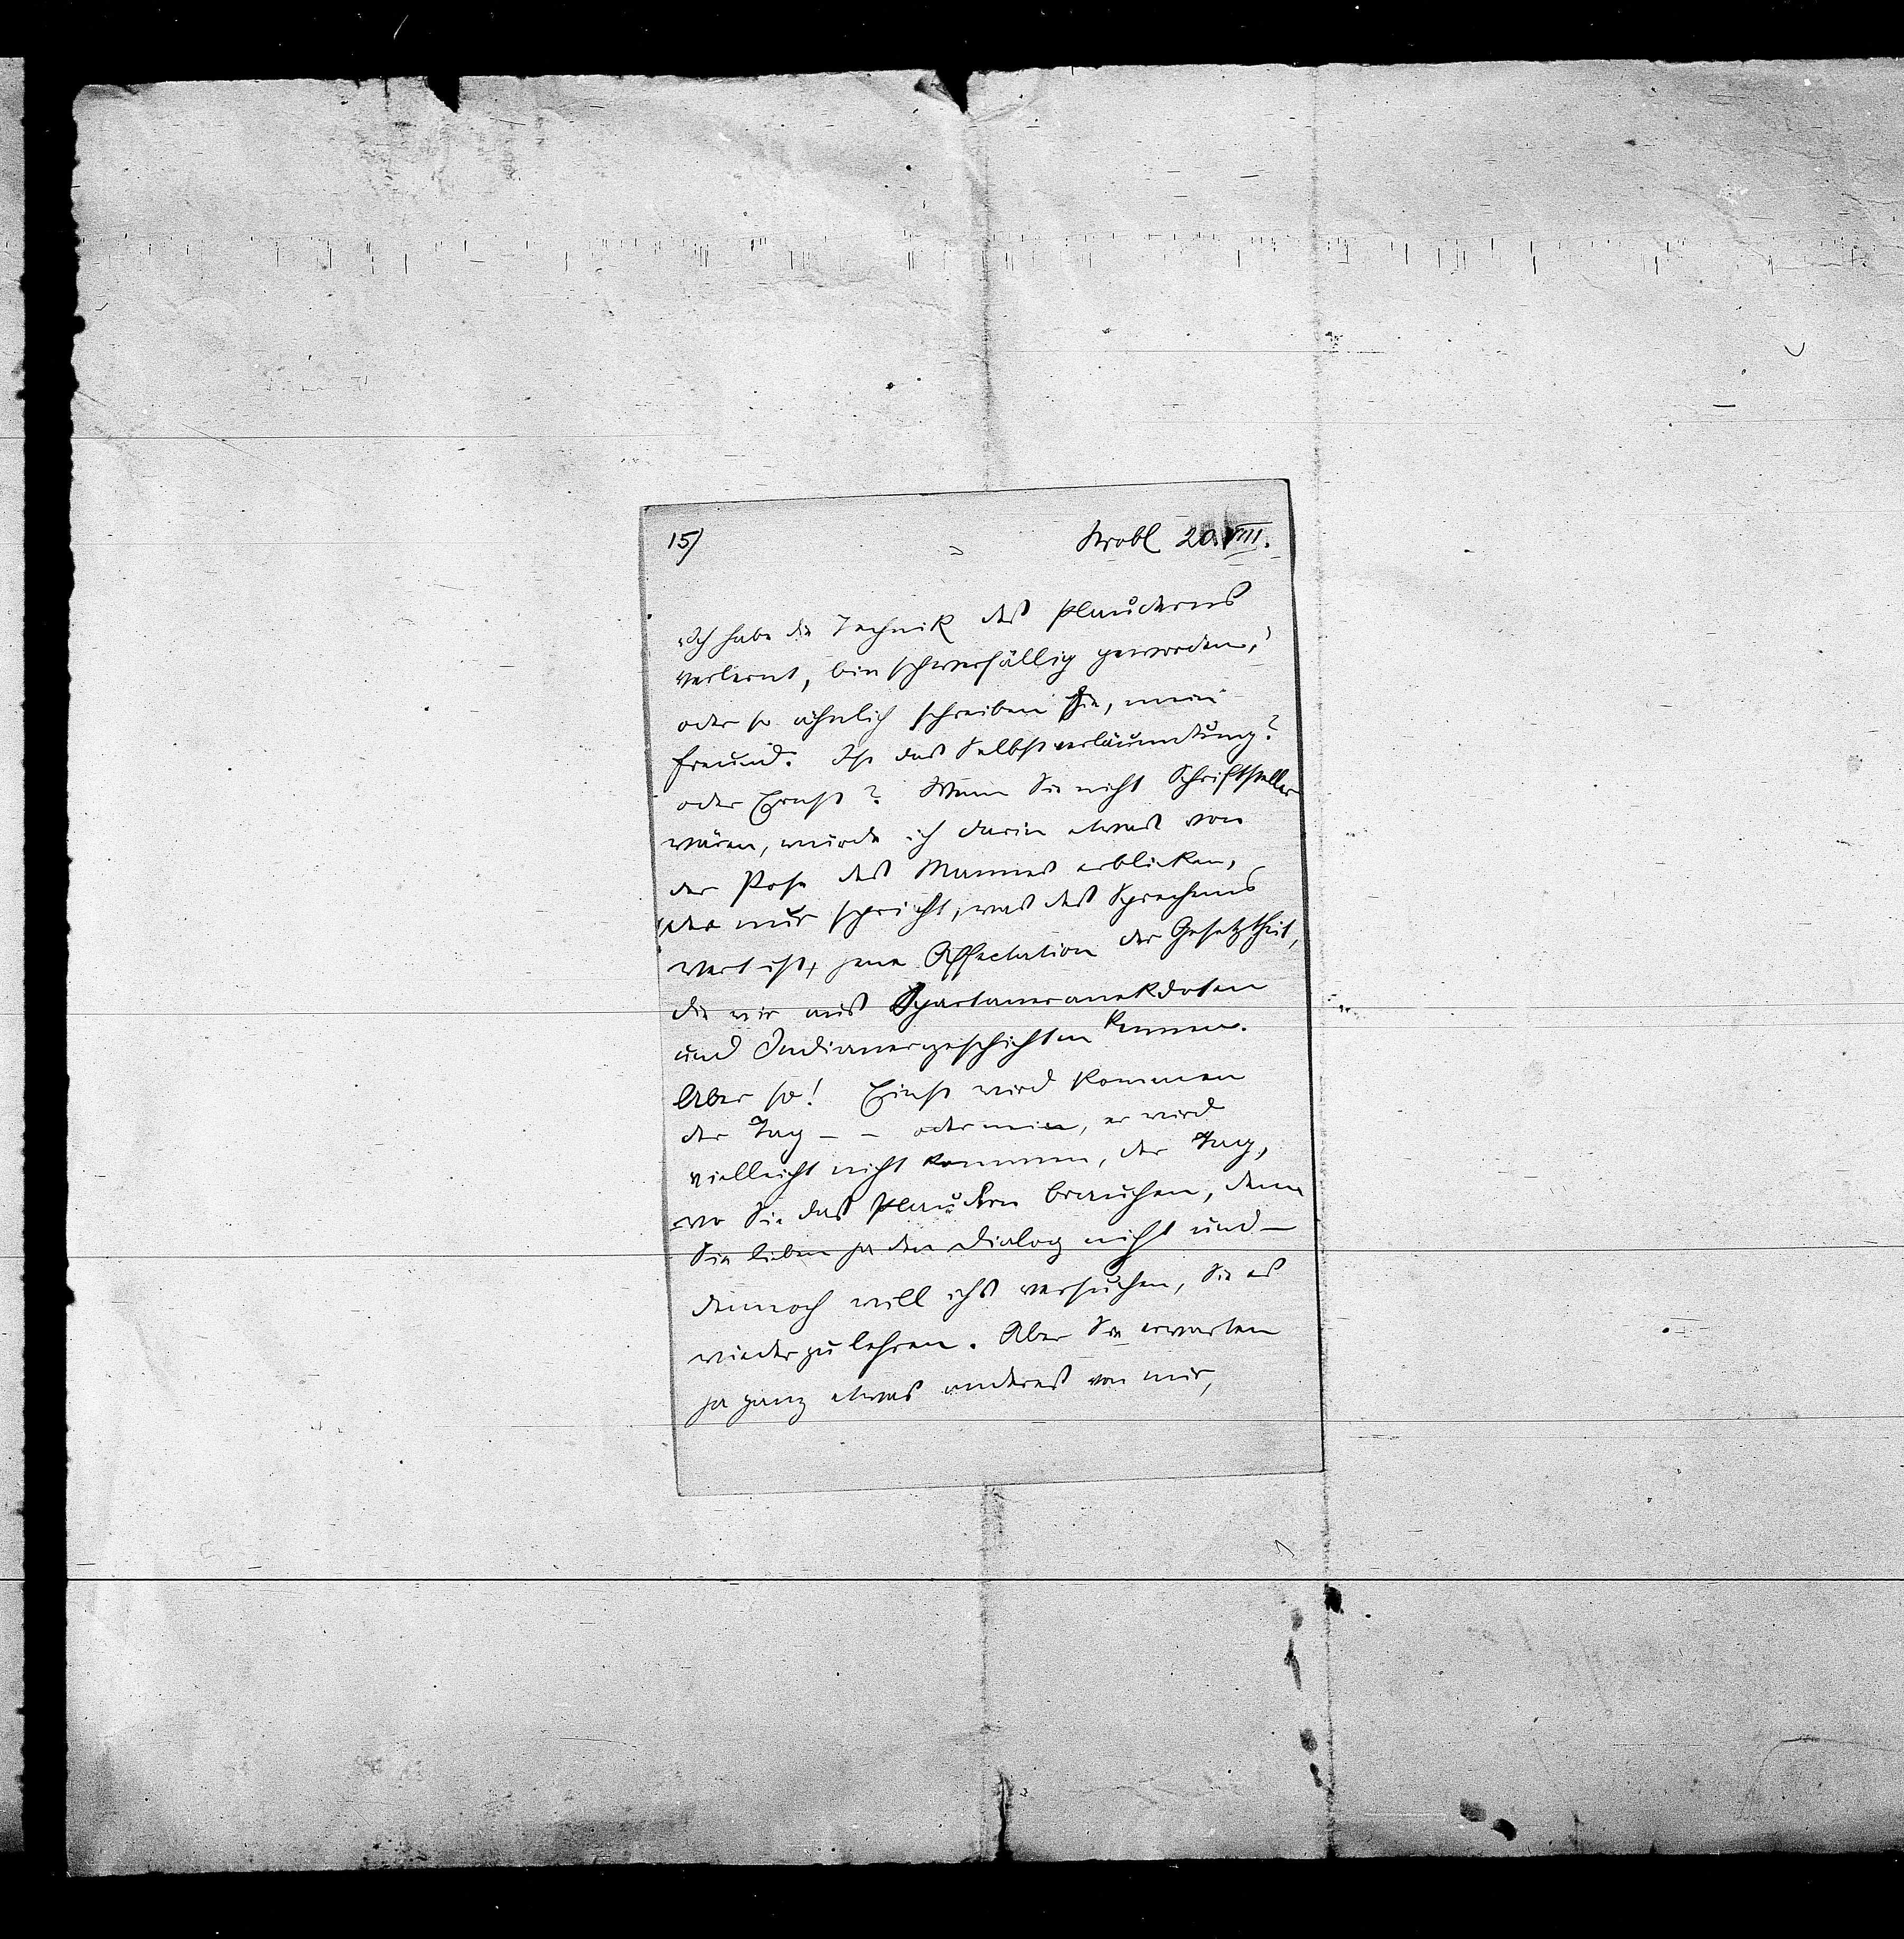 15) Strobl 20.VIII.
„Ich habe die Technik des Plauderns
verlernt, bin schwerfällig geworden,"
oder so ähnlich schreiben Sie, mein
Freund. Ist das Selbstverläumdung?
oder Ernst? Wenn Sie nicht Schriftsteller
wären, würde ich darin etwas von
der Pose des Mannes erblicken,
der nur spricht, was des Sprechens
wert ist, jene Affectation der Gesetztheit,
die wir aus Spartaneranekdoten
und Indianergeschichten kennen.
Aber so! Einst wird kommen
der Tag – – oder nein, er wird
vielleicht nicht kommen, der Tag,
wo Sie das Plaudern brauchen, denn
Sie lieben ja den Dialog nicht und –
dennoch will ichs versuchen, Sie es
wieder zu lehren. Aber Sie erwarten
ja ganz etwas anderes von mir,